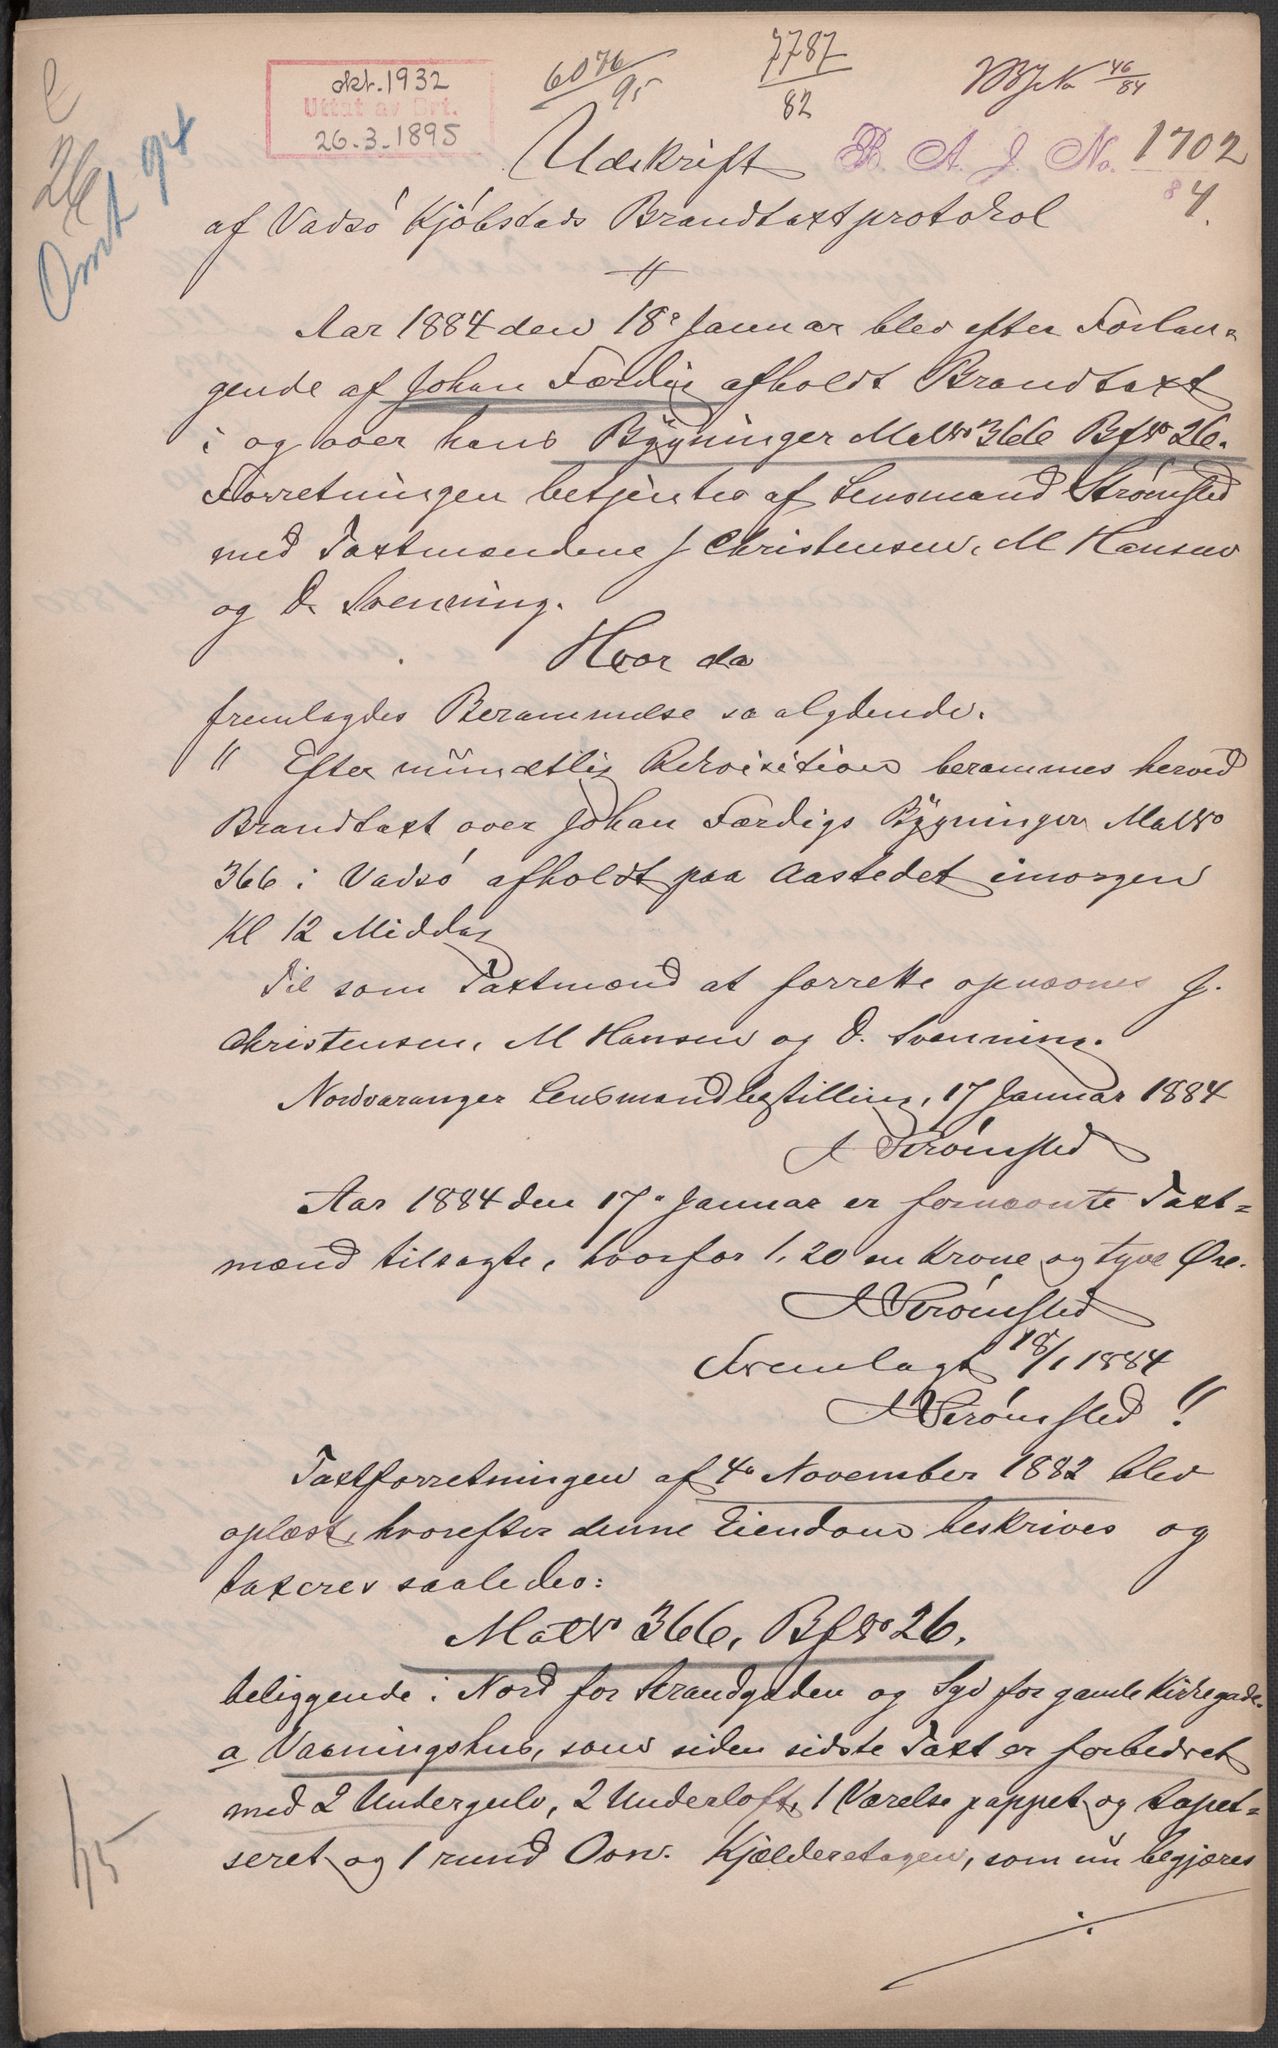 okt. 1932
Uttat av Brt.
26.3.1895
6076/95
7787/82
46/84
C
26
Omt 94
Udskrift B. A. J. No. 1702/84.
af Vadsö Kjöbstads Brandtaxtprotokol
Aar 1884 den 18de Januar blev efter Forlan-
gende af Johan Færdig afholdt Brandtaxt
i og over hans Bygninger MatNo 366 BfNo 26.
Forretningen betjentes af Lensmand Strømsted
med Taxtmændene J Christensen, M Hansen
og D. Svenning.
Hvor da
fremlagdes Berammelse saalydende.
" Efter mündtlig Rekvisition berammes herved
Brandtaxt over Johan Færdigs Bygninger MatNo
366 i Vadsö afholdt paa Aastedet imorgen
Kl 12 Middag
Til som Taxtmænd at forrette opnævnes J.
Christensen, M Hansen og D. Svenning.
Nordvaranger Lensmandbestilling, 17 Januar 1884
A Strömsted
Aar 1884 den 17de Januar er fornævnte Taxt=
mænd tilsagte, hvorfor 1,20 en Krone og tyve Øre.
A Strömsted
Fremlagt 18/1 1884
A Strömsted "
Taxtforretningen af 4de November 1882 blev
oplæst, hvorefter denne Eiendom beskrives og
taxeres saaledes:
MatNo 366, BfNo 26.
beliggende i Nord for Strandgaden og Syd for gamle Kirkegade.
a Vaaningshus, som siden sidste Taxt er forbedret
med 2 Undergulv, 2 Underloft, 1 Værelse pappet og tapet=
seret og 1 rund Ovn. Kjælderetagen, som nü begjæres
1/15